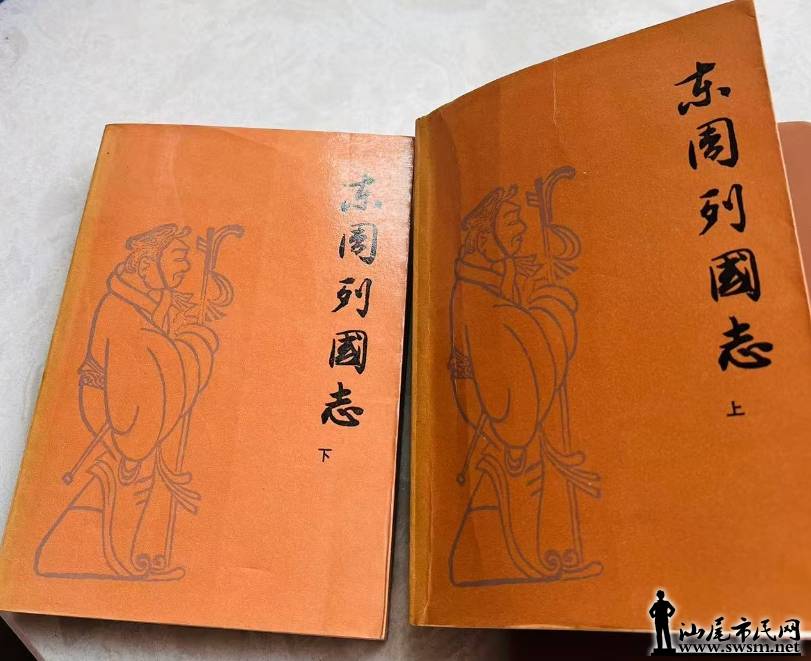 东周列國志
下
东周列國志
上
汕尾市民网
www.swsm.net